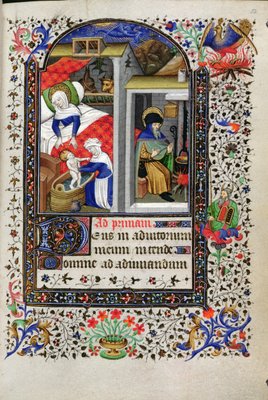 Ad primam
Deus in adiutorium
meum intende
domine ad adiuuandum